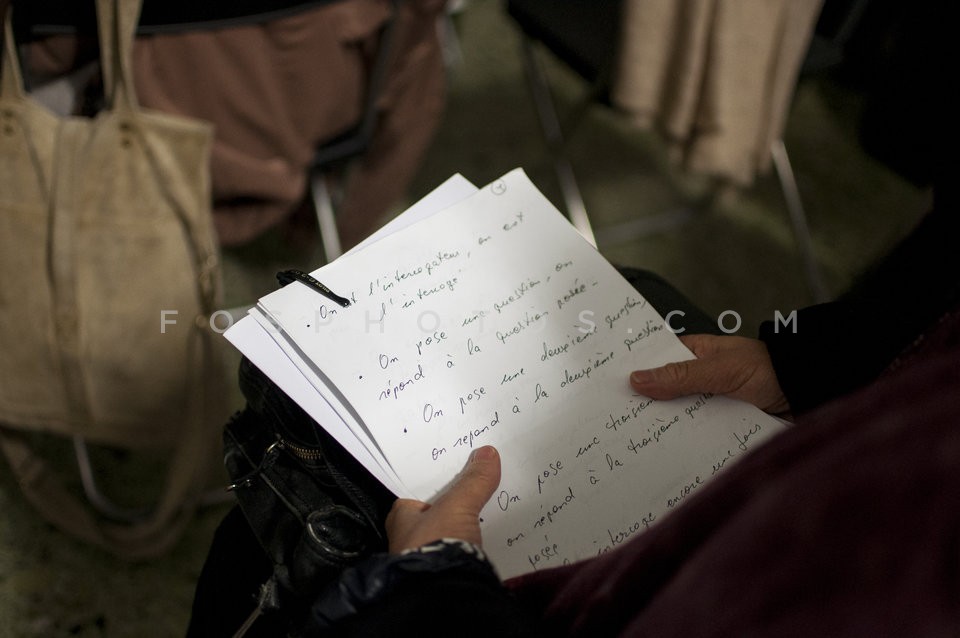 • On est l'interrogateur, on est
l'interrogé
• On pose une question, on
répond à la question posée.
• On pose une deuxième question,
on répond à la deuxième question
• On pose une troisième
on répond à la troisième question
posée
interroge encore une fois
FOSPHOTOS.COM